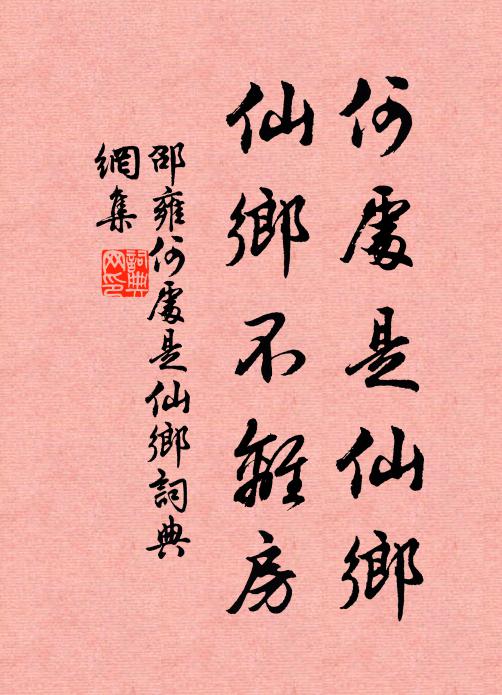 何處是仙鄉
仙鄉不離房
邵雍何處是仙鄉詞典
網集
詞典
网印